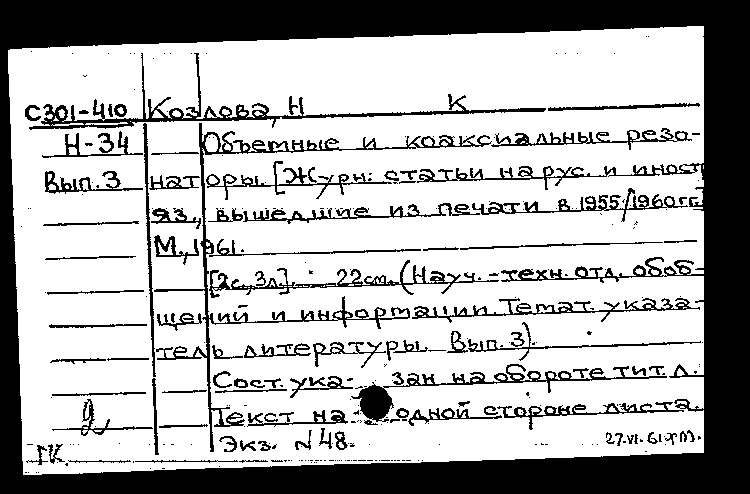 С301-410 Козлова, Н К
Н-34 Объемные и коаксиальные резо-
Вып.3 наторы. [Журн. статьи на рус. и иностр
яз., вышедшие из печати в 1955/1960гг.]
М., 1961.
[2с., 3л.]. 22см. (Науч.-техн. отд. обоб-
щений и информации. Темат. указа-
тель литературы. Вып. 3).
Сост. ука- зан на обороте тит. л.
Текст на одной стороне листа.
2 Экз. N 48. 27.VI.61
ГК.